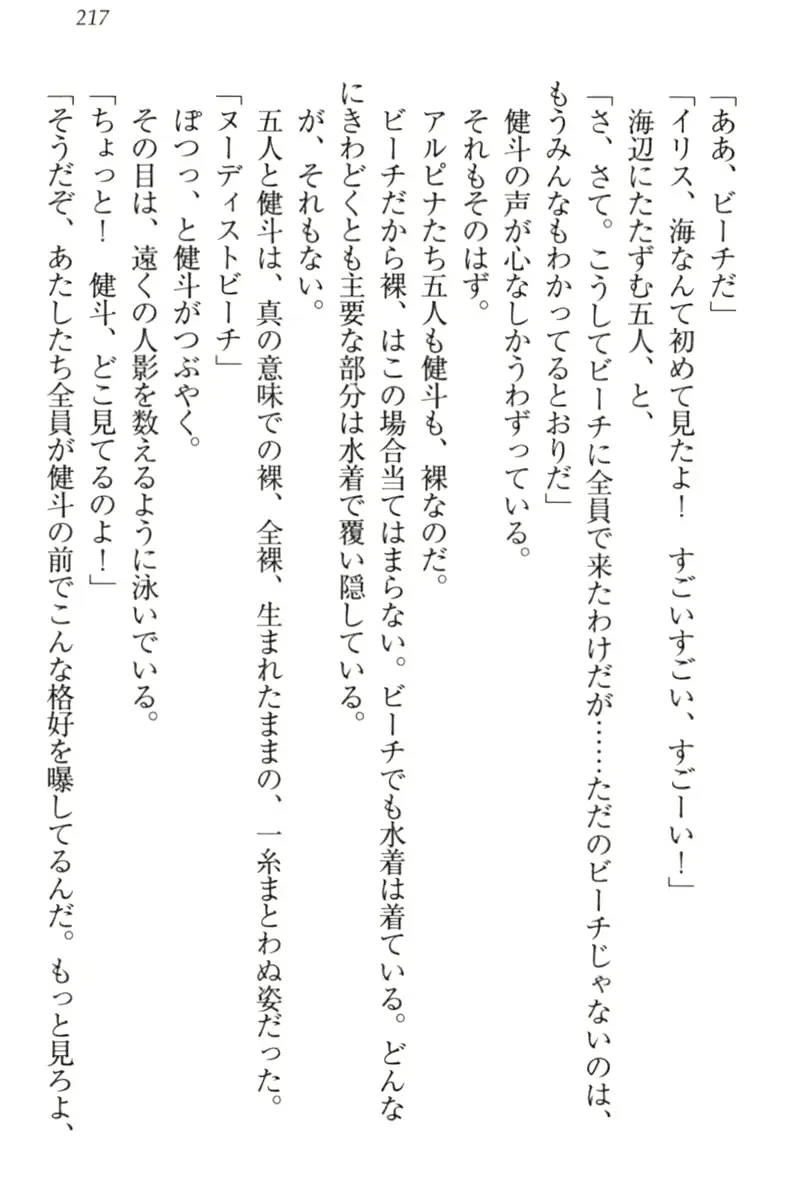 217
「ああ、ビーチだ」
「イリス、海なんて初めて見たよ！　すごいすごい、すごーい！」
海辺にたたずむ五人、と、
「さ、さて。こうしてビーチに全員で来たわけだが……ただのビーチじゃないのは、
もうみんなもわかってるとおりだ」
健斗の声が心なしかうわずっている。
それもそのはず。
アルピナたち五人も健斗も、裸なのだ。
ビーチだから裸、はこの場合当てはまらない。ビーチでも水着は着ている。どんな
にきわどくとも主要な部分は水着で覆い隠している。
が、それもない。
五人と健斗は、真の意味での裸、全裸、生まれたままの、一糸まとわぬ姿だった。
「ヌーディストビーチ」
ぽつっ、と健斗がつぶやく。
その目は、遠くの人影を数えるように泳いでいる。
「ちょっと！　健斗、どこ見てるのよ！」
「そうだぞ、あたしたち全員が健斗の前でこんな格好を曝してるんだ。もっと見ろよ、